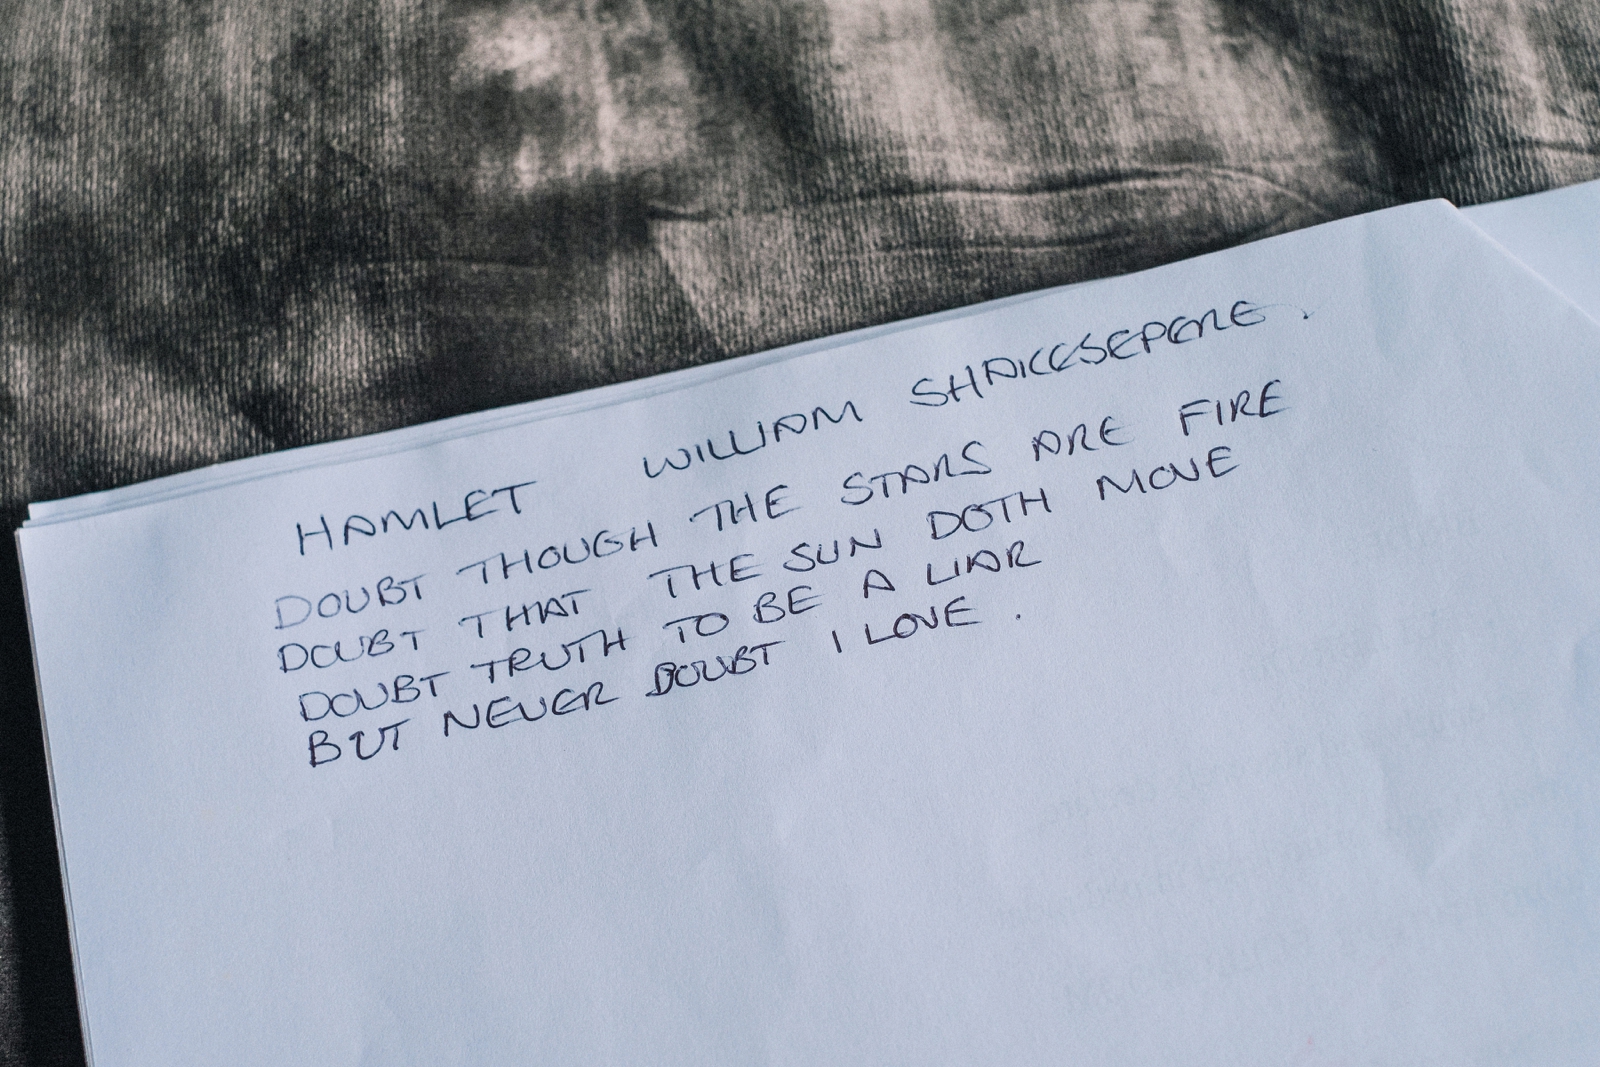 HAMLET WILLIAM SHAKESEPERE.
DOUBT THOUGH THE STARS ARE FIRE
DOUBT THAT THE SUN DOTH MOVE
DOUBT TRUTH TO BE A LIAR
BUT NEVER DOUBT I LOVE.